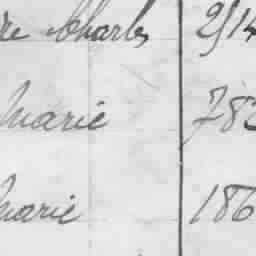 re Charles 2514
Marie 782
Marie 186